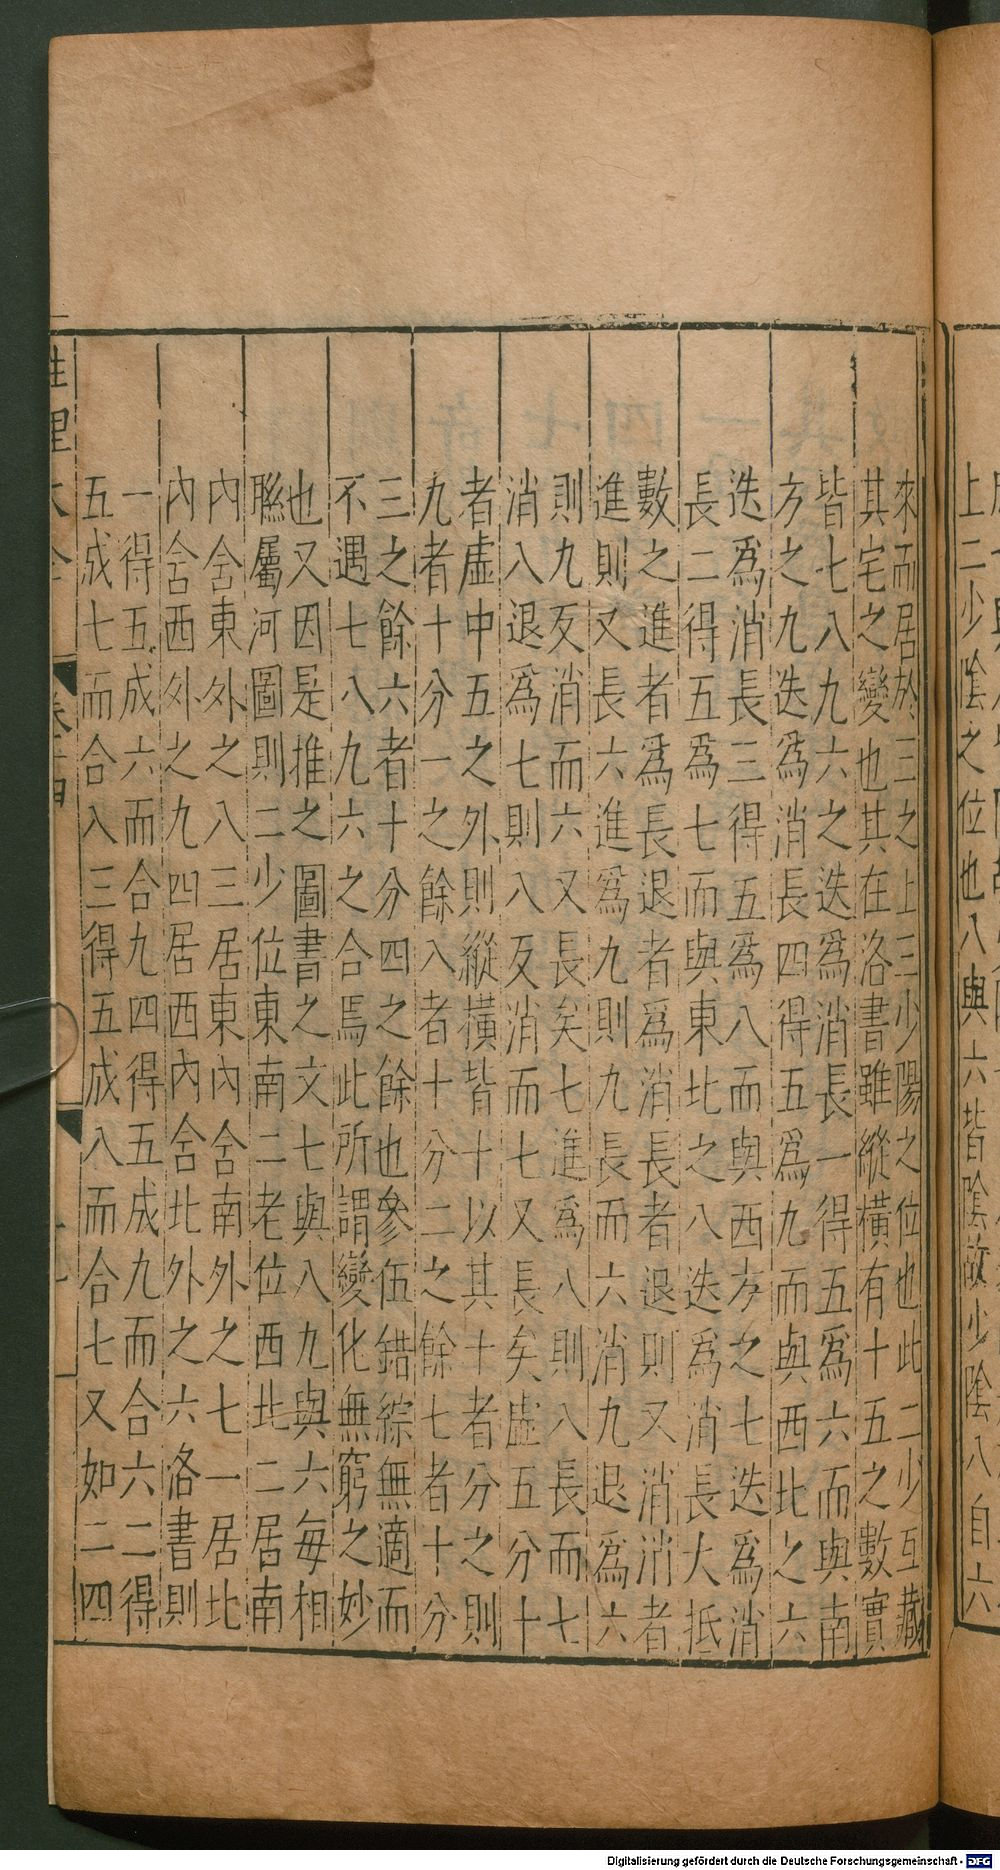 上二少陰之位也八與六皆陰故少陰八自六
來而居於三之上三少陽之位也此二少互藏
其宅之變也其在洛書雖縱橫有十五之數實
皆七八九六之迭爲消長一得五爲六而與南
方之九迭爲消長四得五爲九而與西北之六
迭爲消長三得五爲八而與西方之七迭爲消
長二得五爲七而與東北之八迭爲消長大抵
數之進者爲長退者爲消長者退則又消消者
進則又長六進爲九則九長而六消九退爲六
則九反消而六又長矣七進爲八則八長而七
消八退爲七則八反消而七又長矣虛五分十
者虛中五之外則縱橫皆十以其十者分之則
九者十分一之餘八者十分二之餘七者十分
三之餘六者十分四之餘也參伍錯綜無適而
不遇七八九六之合焉此所謂變化無窮之妙
也又因是推之圖書之文七與八九與六每相
聯屬河圖則二少位東南二老位西北二居南
內含東外之八三居東內含南外之七一居北
內含西外之九四居西內含北外之六洛書則
一得五成六而合九四得五成九而合六二得
五成七而合八三得五成八而合七又如二四
性理大全
卷十四
Digitalisierung gefördert durch die Deutsche Forschungsgemeinschaft - DFG